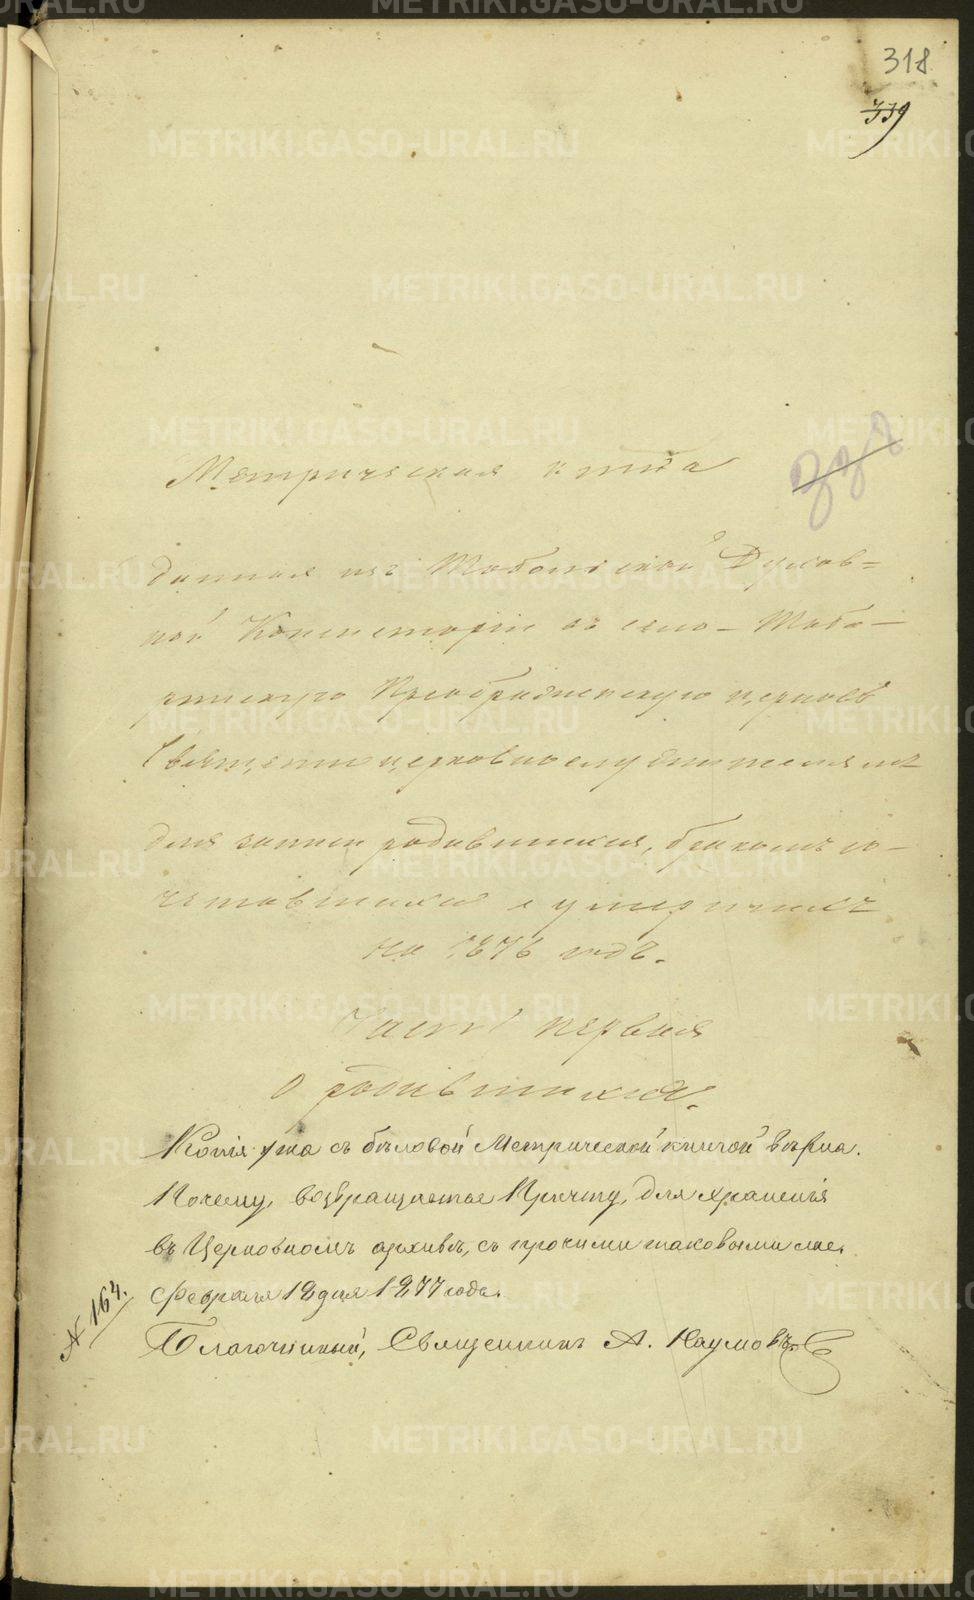 318
339
Метрическая книга
данная изъ Тобольской Духов=
ной Консисторіи въ село-Таба-
ринскую Преображенскую церковь
Священноцерковнослужителямъ
для записи родившихся, бракомъ со-
четавшихся и умершихъ
на 1876 годъ.
Часть первая
О родившихся.
Копія эта съ бѣловой Метрической книгой вѣрна.
Почему, возвращается Причту, для храненія
въ Церковномъ архивѣ, съ прочими таковыми же.
Февраля 12 дня 1877 года.
№ 164.
Благочинный, Священникъ А. Наумовъ
METRIKI.GASO-URAL.RU